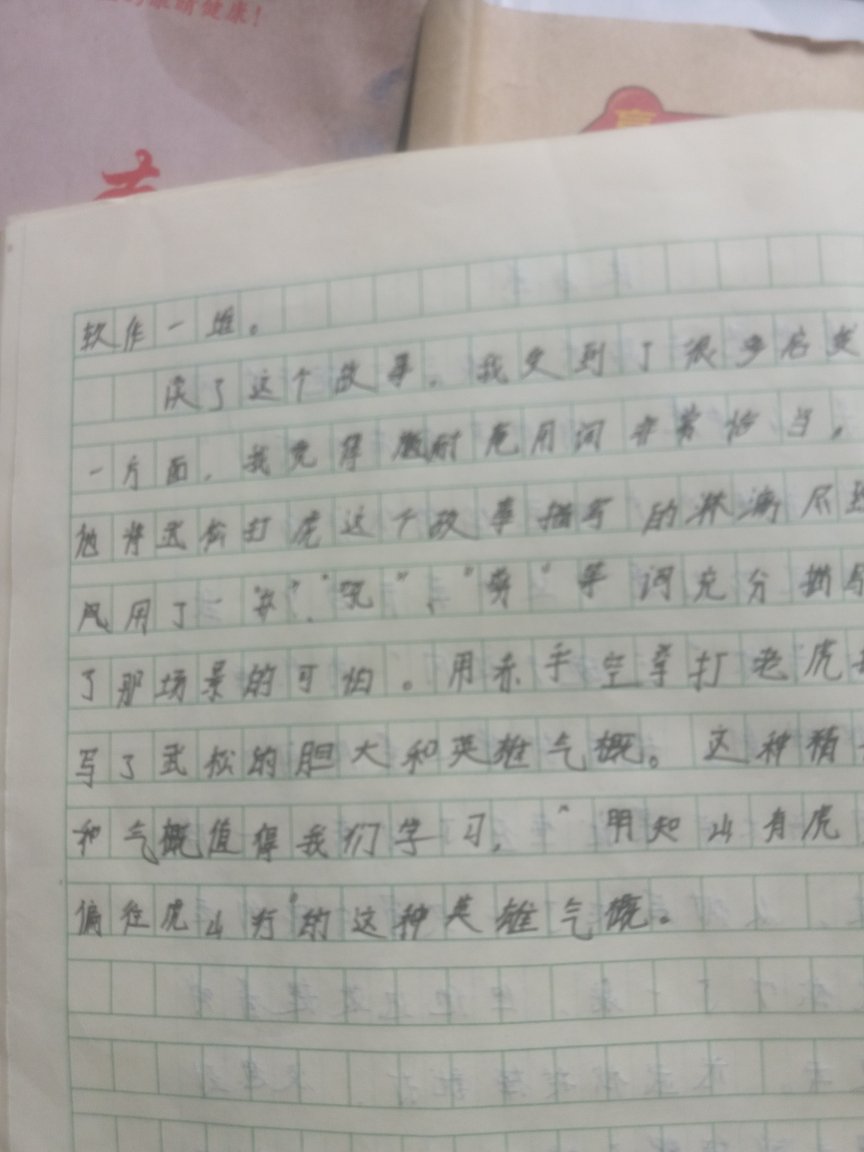 的眼睛健康！
软作一堆。
读了这个故事，我受到了很多启发
一方面，我觉得施耐庵用词非常恰当，
他将武松打虎这个故事描写的淋漓尽
风用了"扑"、"吼"、"剪"等词充分描写
了那场景的可怕。用赤手空拳打老虎
写了武松的胆大和英雄气概。这种精
和气概值得我们学习，"明知山有虎
偏往虎山行"的这种英雄气概。